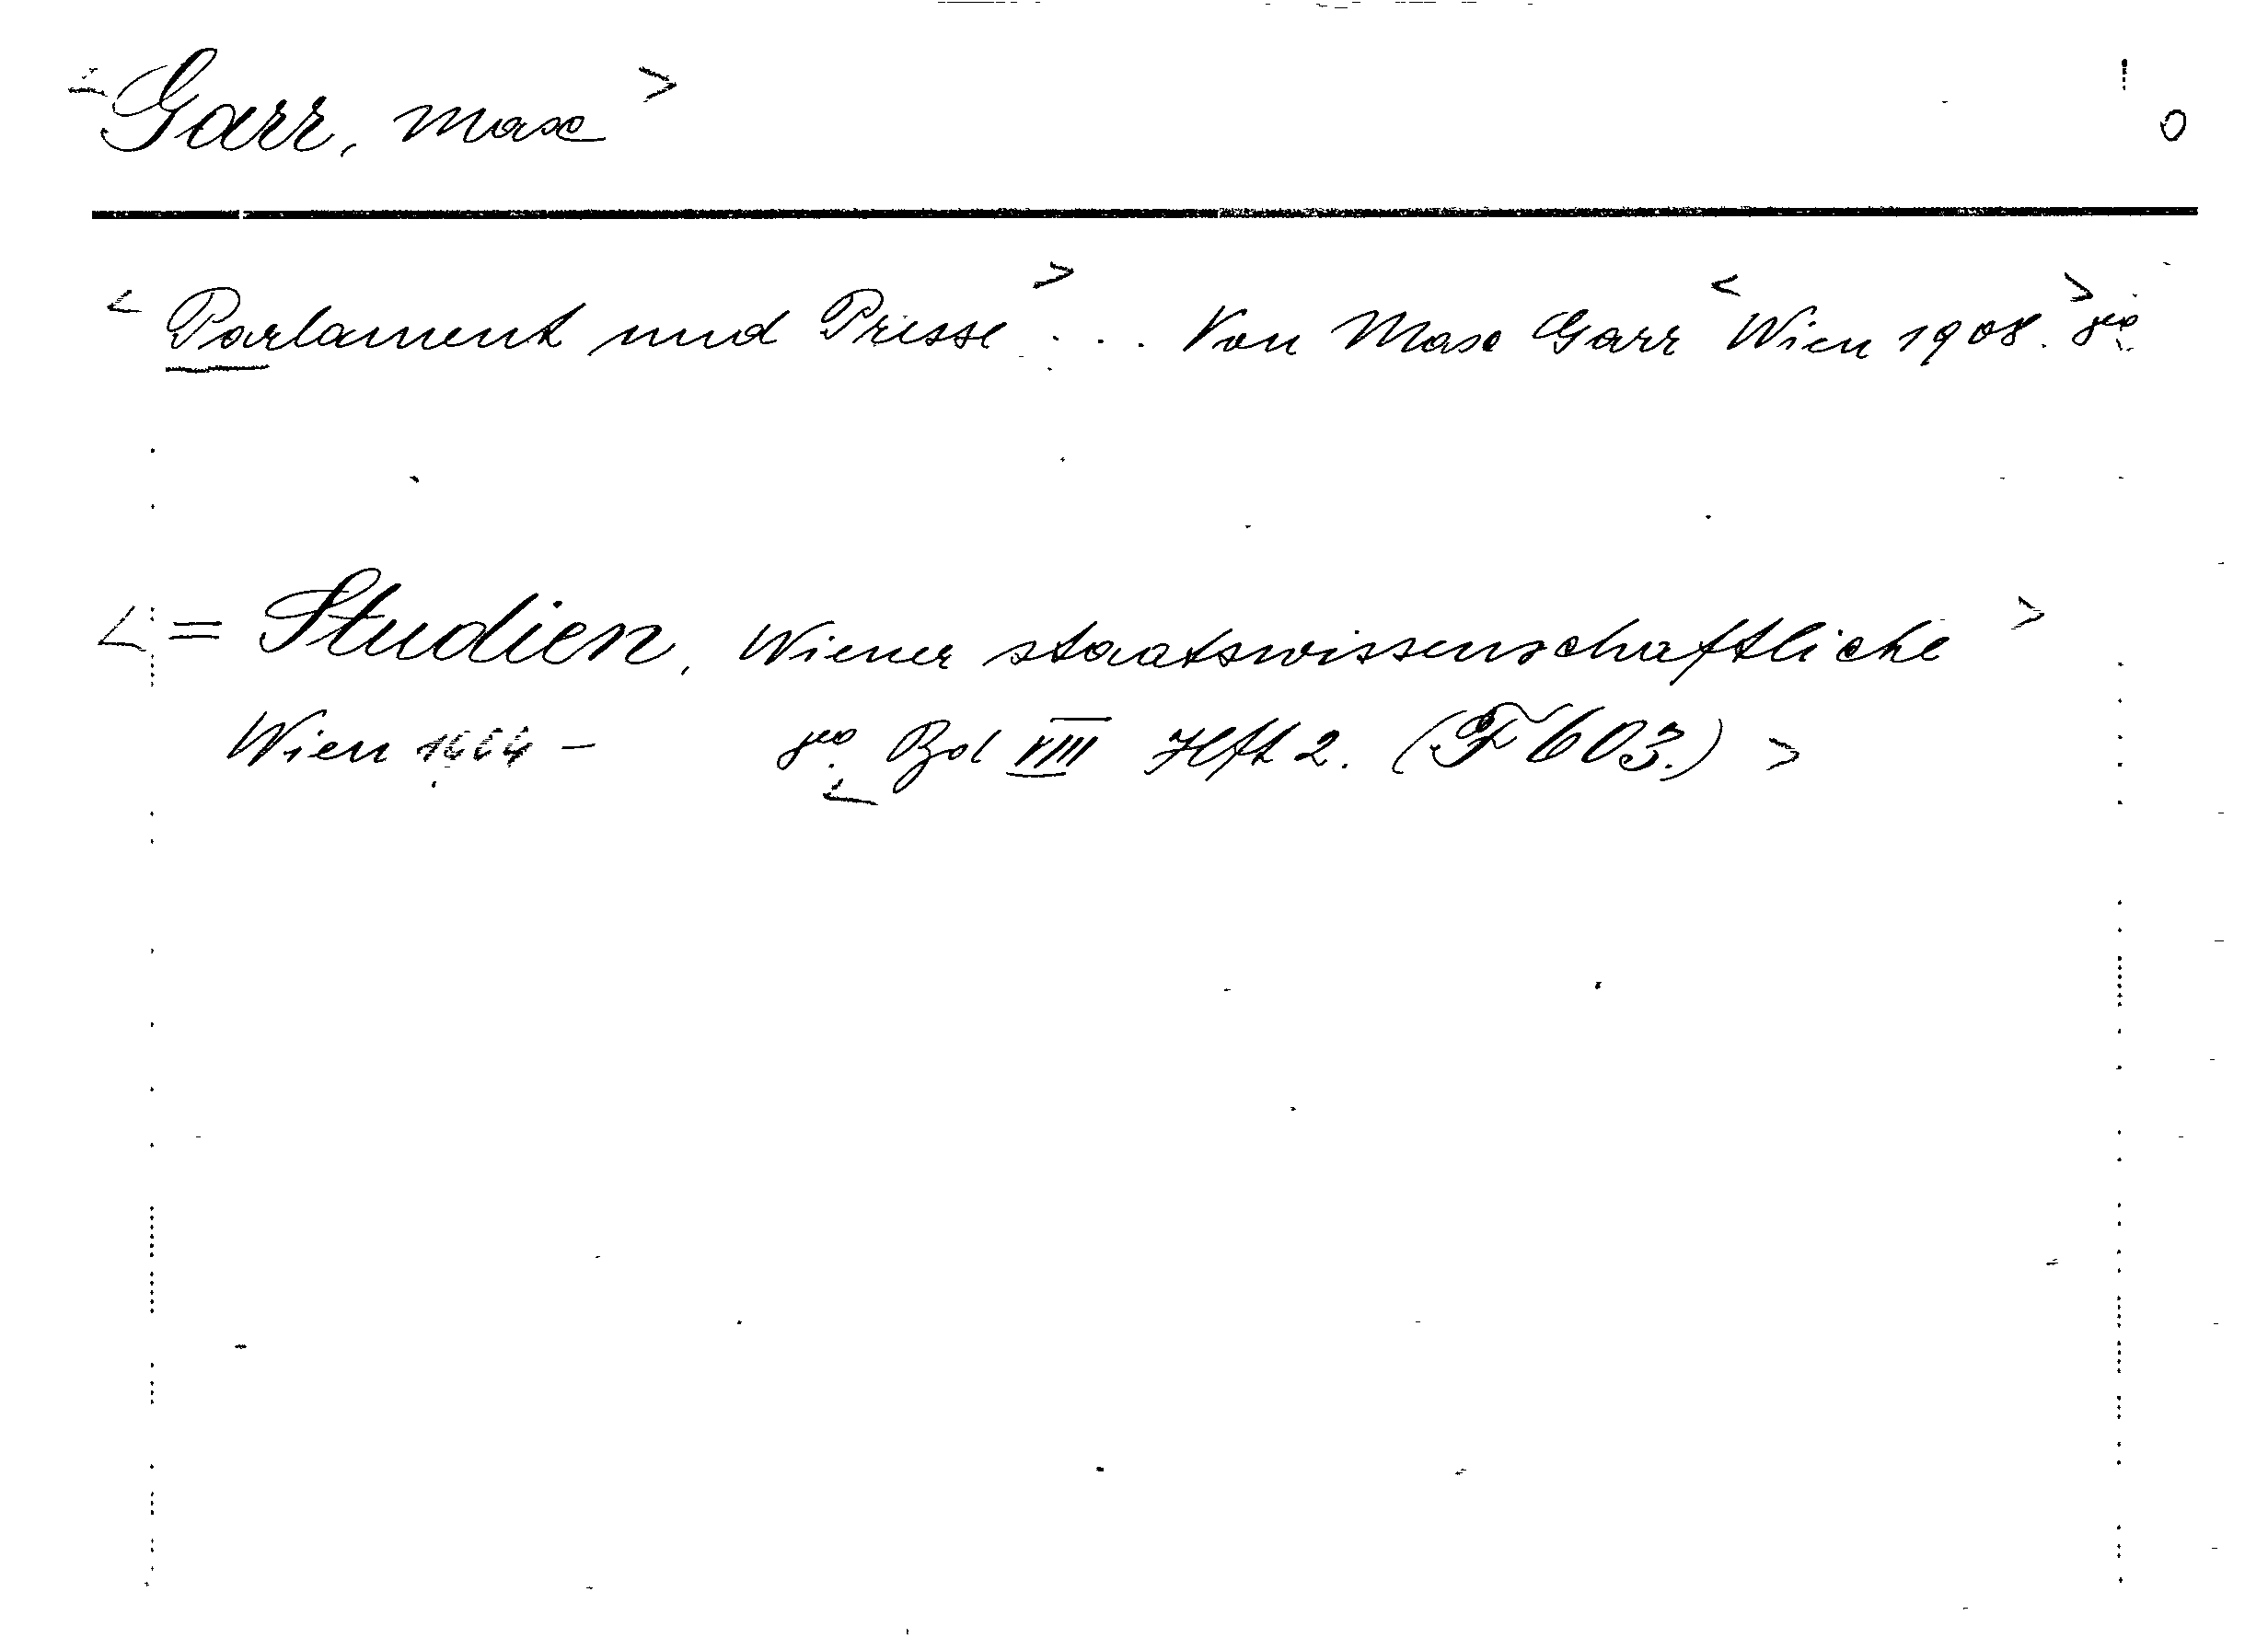 <Garr, Max> 0
<Parlament und Presse> . . . Von Max Garr <Wien 1908.> 8°
<= Studien, Wiener staatswissenschaftliche>
Wien – 8° <Bd VIII Hft 2. (F 603.)>